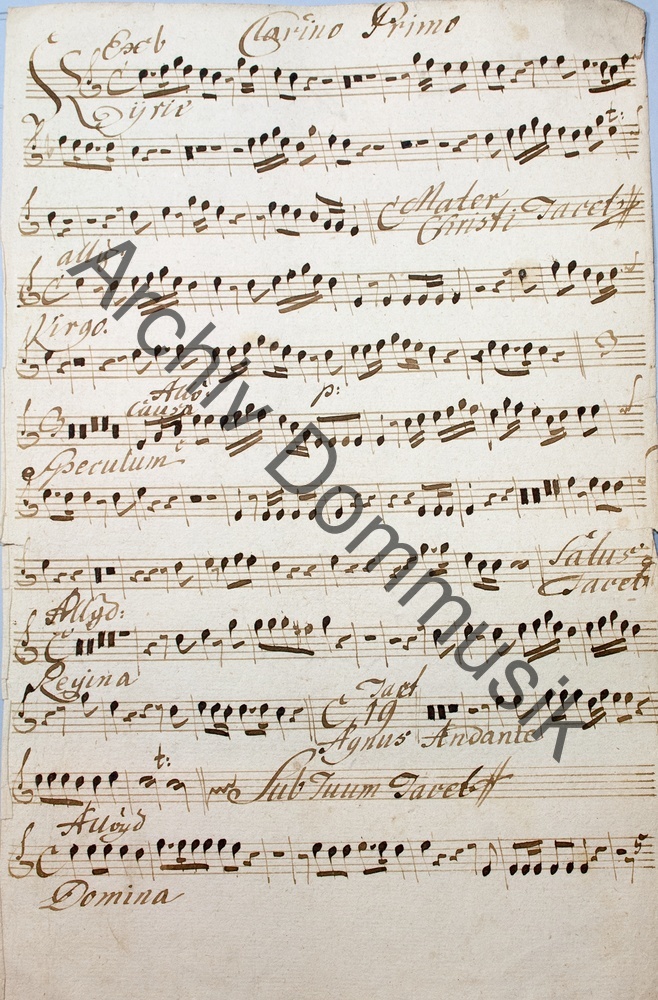 Ex c b Clarino Primo
Kyrie
t:
Mater
Christi Tacet
all:
Virgo.
3
Allo: p:
Causa
Speculum
Salus
Tacet
All:
Regina
Tact
19
Agnus Andante
t:
Sub Tuum Tacet
Domina
Archiv Dommusik